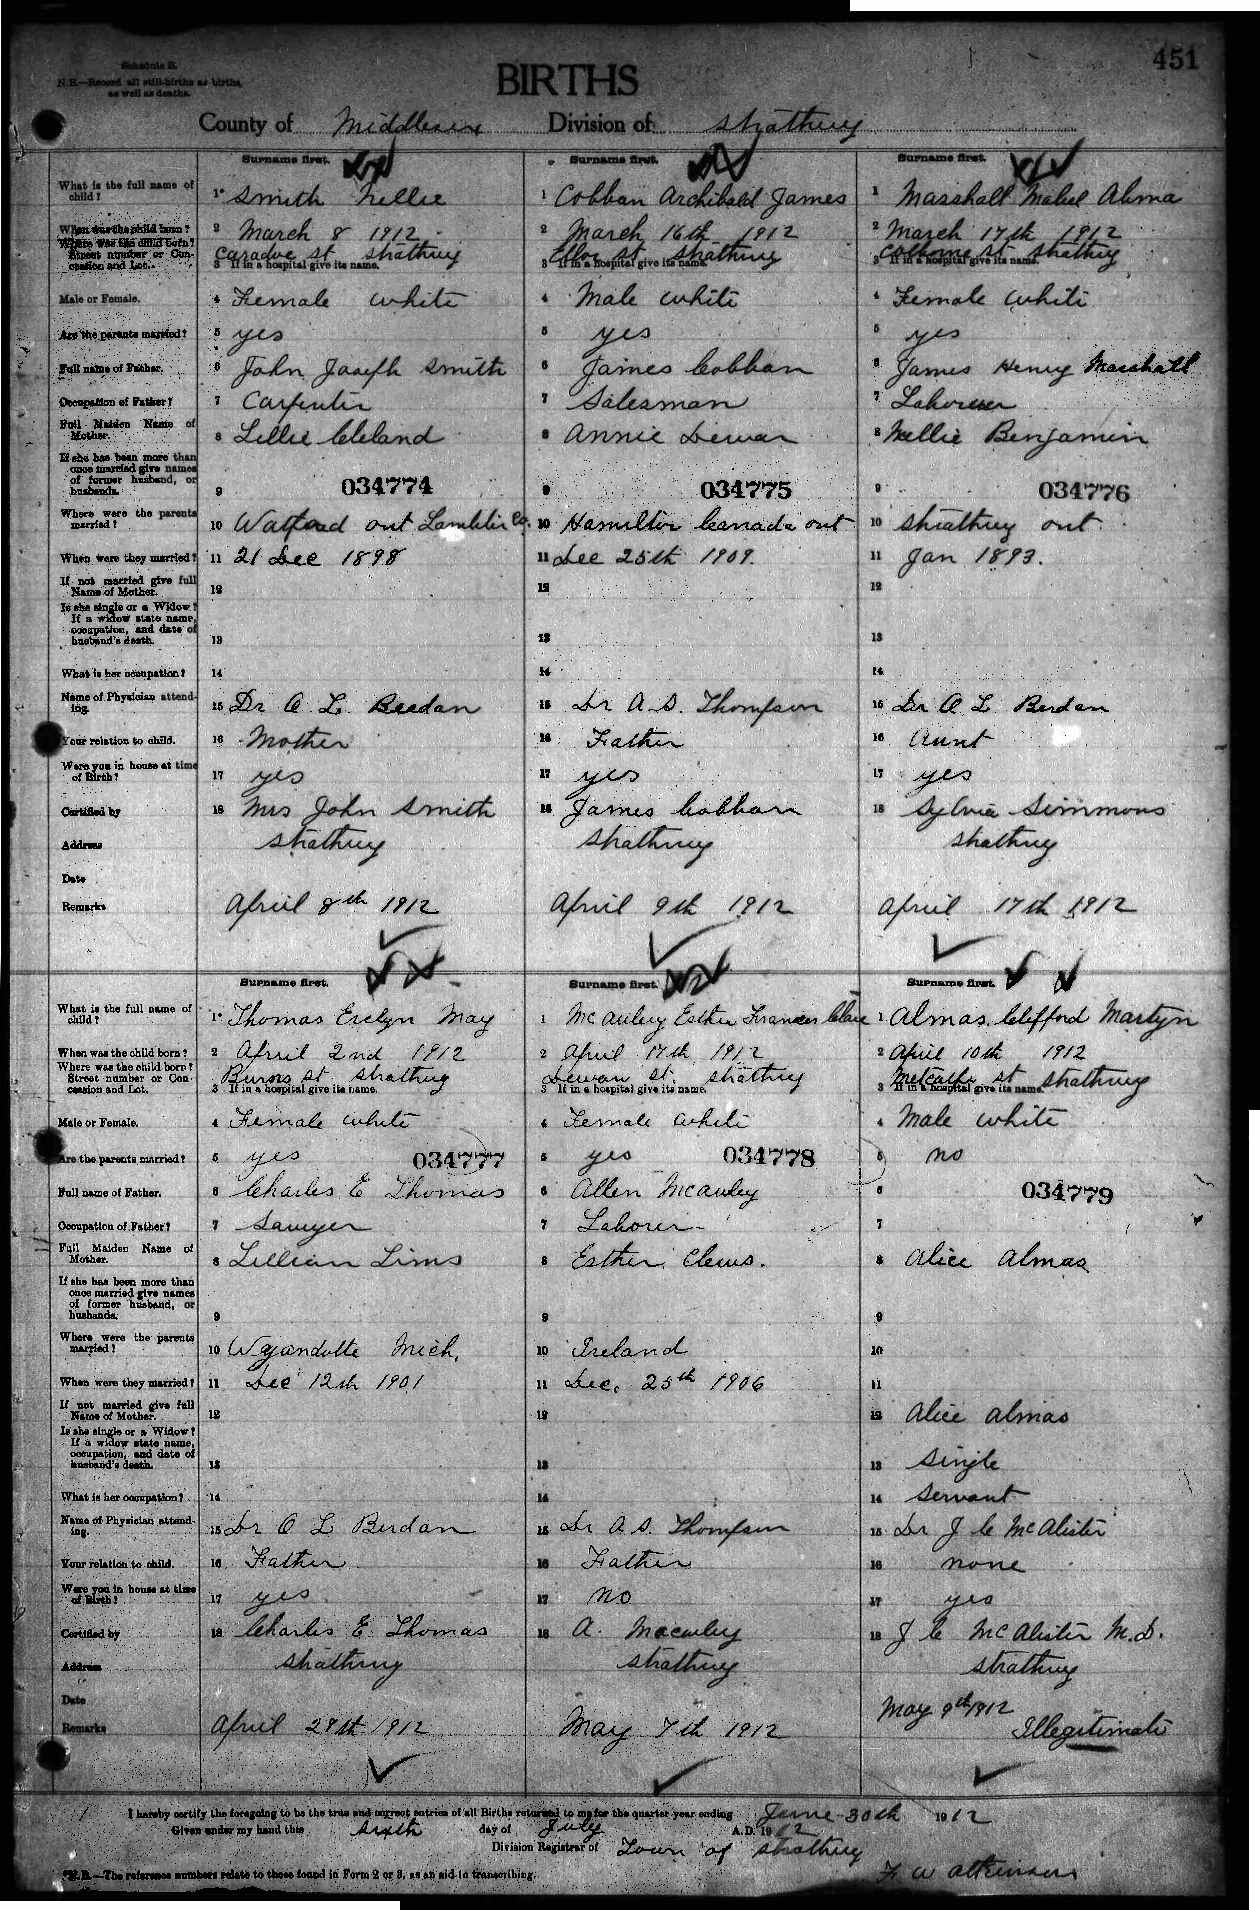 451
Schedule B.
N.B.—Record all still-births as births, as well as deaths.
BIRTHS
County of Middlesex Division of Strathroy
Surname first. Surname first. Surname first.
What is the full name of child? 1* Smith Nellie 1 Cobban Archibald James 1 Marshall Mabel Alma
When was the child born? 2 March 8 1912 2 March 16th 1912 2 March 17th 1912
Where was the child born? Street number or Concession and Lot. 3 If in a hospital give its name. Caradoc st Strathroy 3 If in a hospital give its name. st Strathroy 3 If in a hospital give its name. Colborne st Strathroy
Male or Female. 4 Female white 4 Male white 4 Female white
Are the parents married? 5 yes 5 yes 5 yes
Full name of Father. 6 John Joseph Smith 6 James Cobban 6 James Henry Marshall
Occupation of Father? 7 Carpenter 7 Salesman 7 Labourer
Full Maiden Name of Mother. 8 Lillie Cleland 8 Annie Dewar 8 Nellie Benjamin
If she has been more than once married give names of former husband, or husbands. 9 034774 9 034775 9 034776
Where were the parents married? 10 Watford ont Lambton Co. 10 Hamilton Canada ont 10 Strathroy ont
When were they married? 11 21 Dec 1898 11 Dec 25th 1909. 11 Jan 1893.
If not married give full Name of Mother. 12 12 12
Is she single or a Widow? If a widow state name, occupation, and date of husband's death. 13 13 13
What is her occupation? 14 14 14
Name of Physician attending. 15 Dr A. L. Berdan 15 Dr A. S. Thompson 15 Dr A L Berdan
Your relation to child. 16 Mother 16 Father 16 Aunt
Were you in house at time of Birth? 17 yes 17 yes 17 yes
Certified by 18 Mrs John Smith 18 James Cobban 18 Sylvia Simmons
Address Strathroy Strathroy Strathroy
Date
Remarks April 8th 1912 April 9th 1912 April 17th 1912
Surname first. Surname first. Surname first.
What is the full name of child? 1* Thomas Evelyn May 1 McAuley Esther Frances Clare 1 Almas Clifford Martyn
When was the child born? 2 April 2nd 1912 2 April 17th 1912 2 April 10th 1912
Where was the child born? Street number or Concession and Lot. 3 If in a hospital give its name. Burns st Strathroy 3 If in a hospital give its name. Dewan st. Strathroy 3 If in a hospital give its name. Metcalfe st Strathroy
Male or Female. 4 Female white 4 Female white 4 Male white
Are the parents married? 5 yes 034777 5 yes 034778 5 no
Full name of Father. 6 Charles E Thomas 6 Allen McAuley 6 034779
Occupation of Father? 7 Sawyer 7 Laborer 7
Full Maiden Name of Mother. 8 Lillian Sims 8 Esther Clews. 8 Alice Almas
If she has been more than once married give names of former husband, or husbands. 9 9 9
Where were the parents married? 10 Wyandotte Mich. 10 Ireland 10
When were they married? 11 Dec 12th 1901 11 Dec. 25th 1906 11
If not married give full Name of Mother. 12 12 12 Alice Almas
Is she single or a Widow? If a widow state name, occupation, and date of husband's death. 13 13 13 Single
What is her occupation? 14 14 14 Servant
Name of Physician attending. 15 Dr A L Berdan 15 Dr A. S. Thompson 15 Dr J C McAlister
Your relation to child. 16 Father 16 Father 16 none
Were you in house at time of Birth? 17 yes 17 No 17 yes
Certified by 18 Charles E Thomas 18 A. Macauley 18 J C McAlister M.D.
Address Strathroy Strathroy Strathroy
Date May 9th 1912
Remarks April 29th 1912 May 7th 1912 Illegitimate
I hereby certify the foregoing to be the true and correct entries of all Births returned to me for the quarter year ending June 30th 1912
Given under my hand this sixth day of July A.D. 1912
Division Registrar of Town of Strathroy
*N.B.—The reference numbers relate to those found in Form 2 or 3, as an aid in transcribing. F W Atkinson